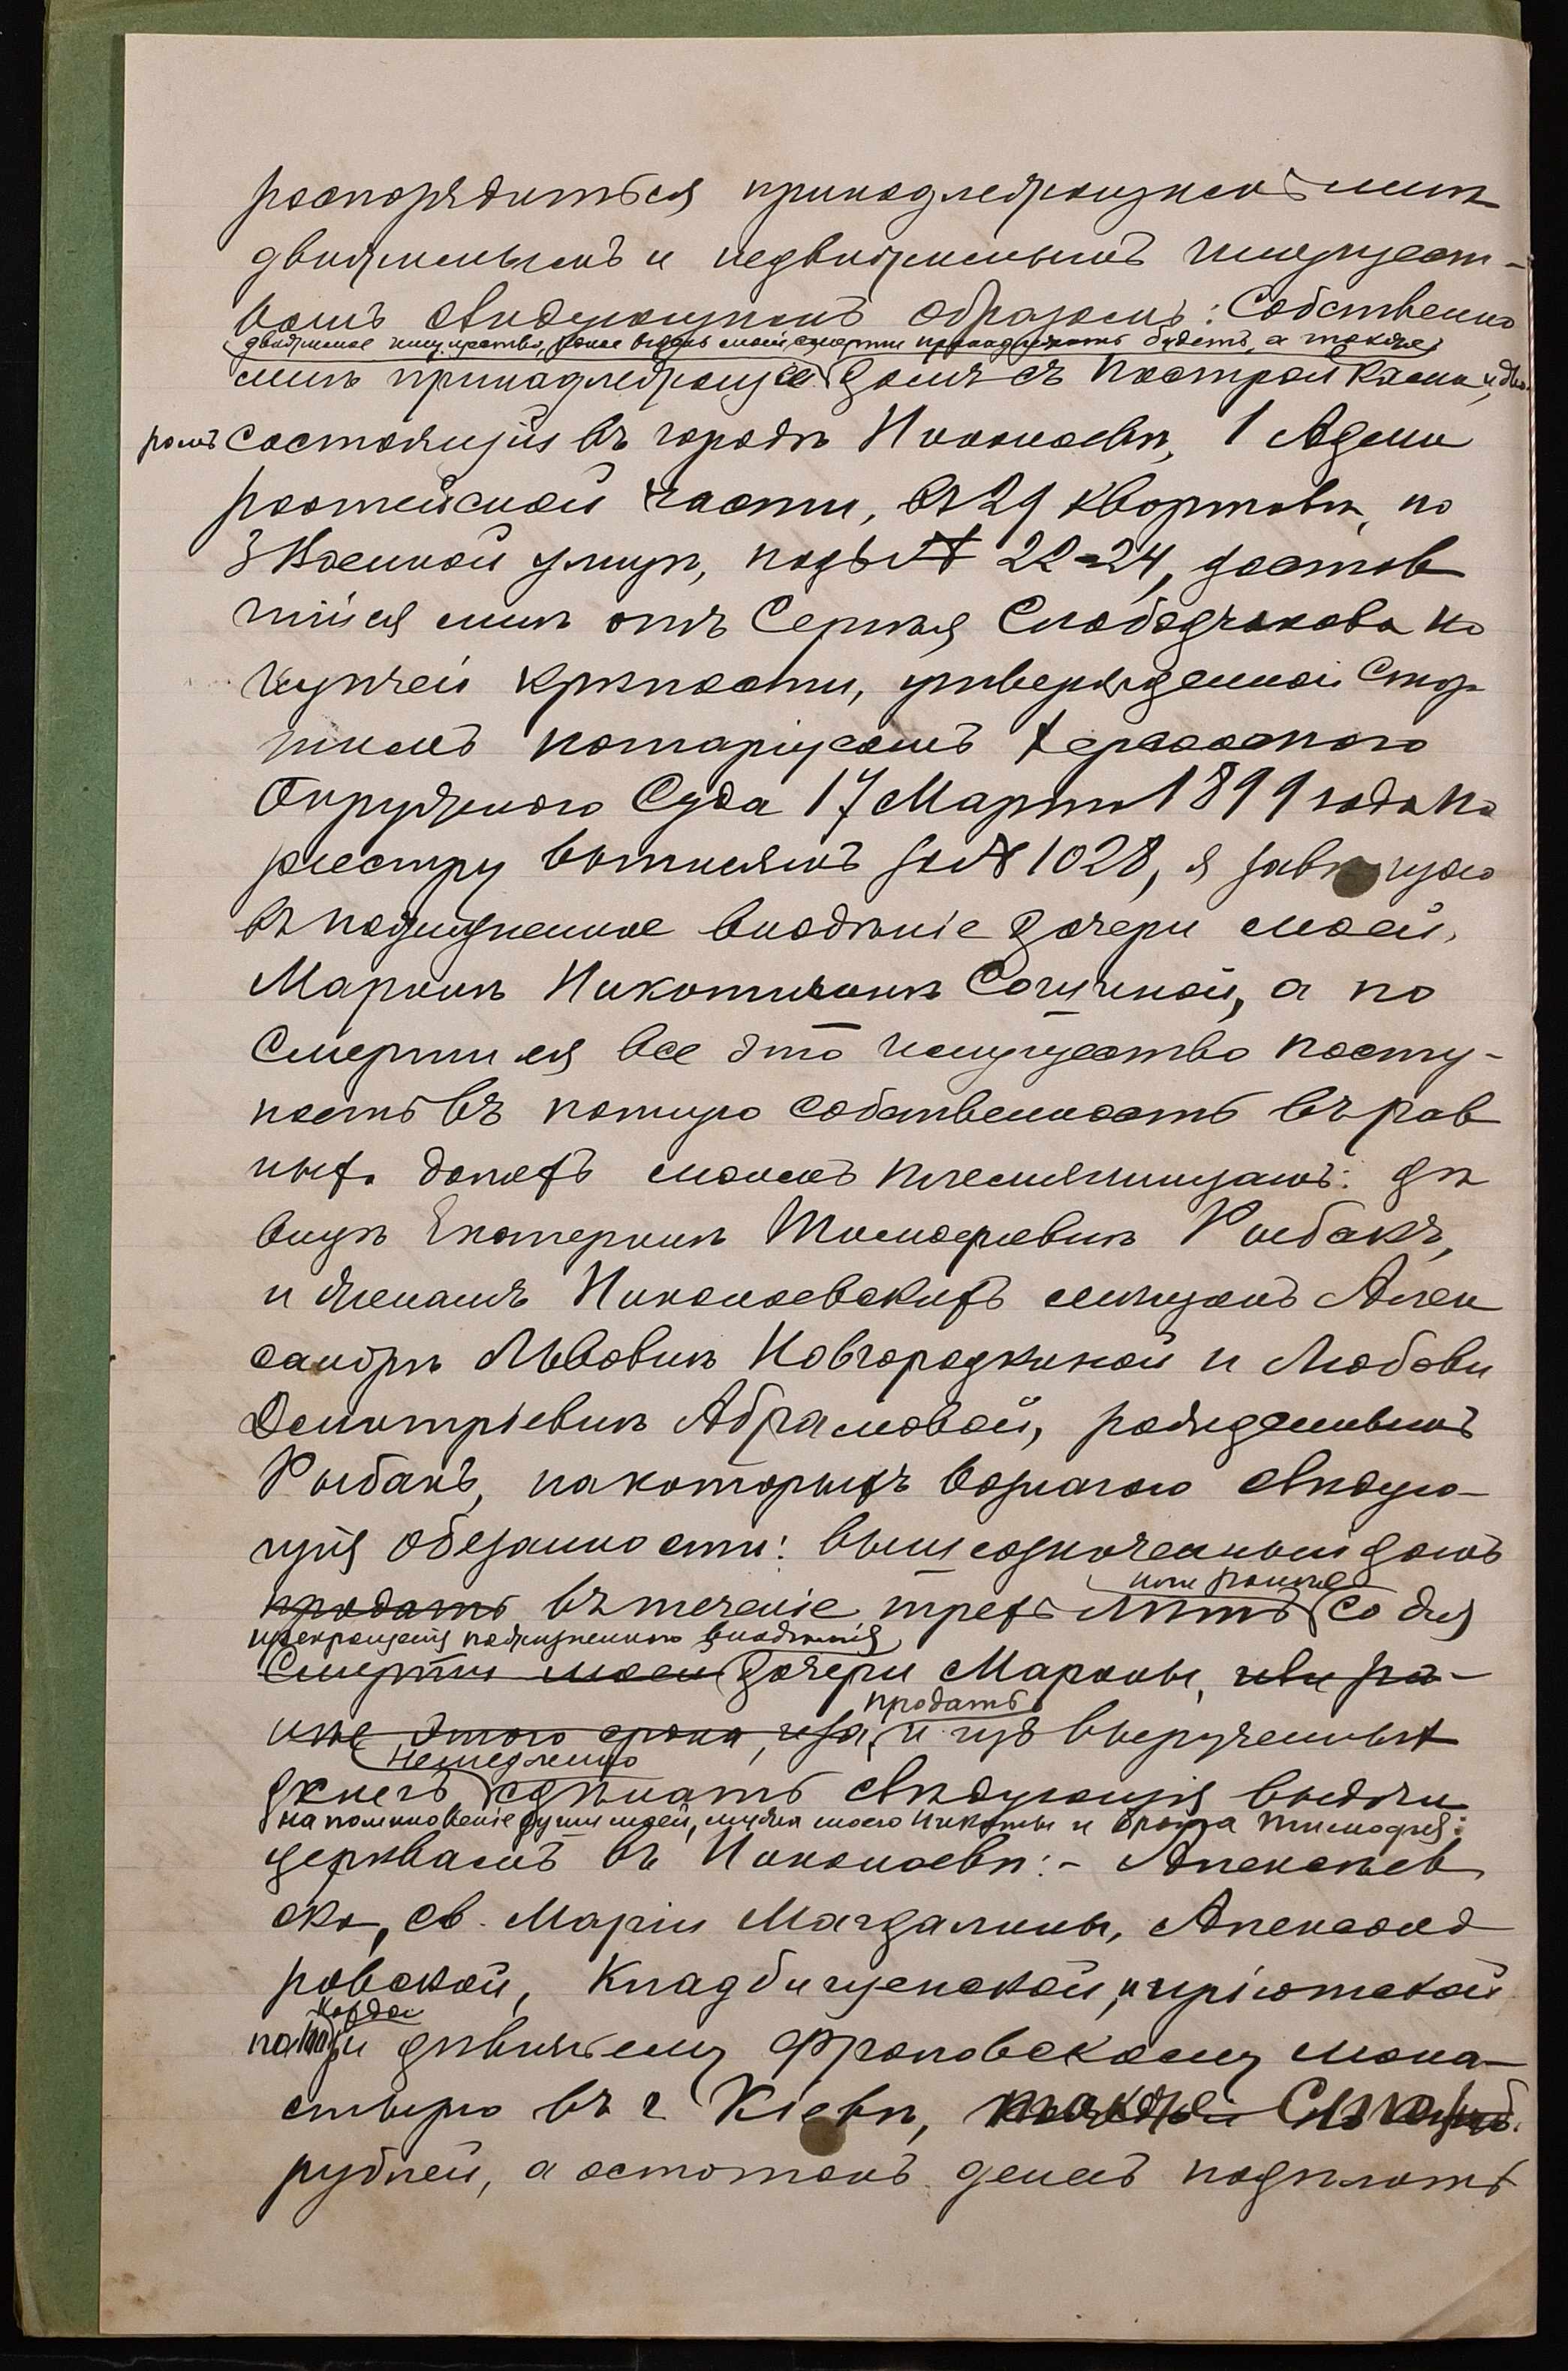 распорядиться принадлежащимъ мнѣ
движимымъ и недвижимымъ имущест-
вомъ слѣдующимъ образомъ: Собственно
движимое имущество, какое въ день моей смерти принадлежать будетъ, а также
мнѣ принадлежащее домъ съ постройками и дво-
ромъ состоящія въ городѣ Николаевѣ, 1 Адми
ралтейской части, въ 29 кварталѣ, по
3 Военной улицѣ, подъ № 22-24, достав
шійся мнѣ отъ Сергѣя Слободчакова по
купчей крѣпости, утвержденной Стар
шимъ нотаріусомъ Херсонского
Окружного Суда 17 Марта 1899 года по
реестру выписямъ за № 1028, я завѣщаю
въ пожизненное владѣніе дочери моей,
Маріинѣ Никотичнѣ Сочичной, а по
смерти ея все это имущество посту-
паетъ въ полную собственность въ рав
ныхъ доляхъ моимъ племянницамъ: дѣ
вицѣ Екатеринѣ Тимофѣевнѣ Рыбакъ,
и женамъ Николаевскихъ мѣщанъ Алек
сандрѣ Львовнѣ Новгородкиной и Любови
Дмитріевнѣ Абрамовой, рожденнымъ
Рыбакъ, на которыхъ возлагаю слѣдую-
щія обезанности: вышеозначенный домъ
или раньше
продать въ теченіе трехъ лѣтъ со дня
прекращенія пожизненного владѣнія
смерти моей дочери Маріины, или ра-
продать
нѣе этого срока, и за, и изъ вырученныхъ
немедленно
денегъ сдѣлать слѣдующія выдачи
на поминовеніе души моей, мужа моего Никиты и брата Тимофея:
церквамъ въ Николаевѣ:- Алексѣев
ской, св. Маріи Магдалины, Александ
ровской, Кладбищенской, и пріютской
каждой
по и дѣвичьему Фроловскому мона-
стырю въ г Кіевѣ, также
рублей, а остатокъ денегъ подѣлить